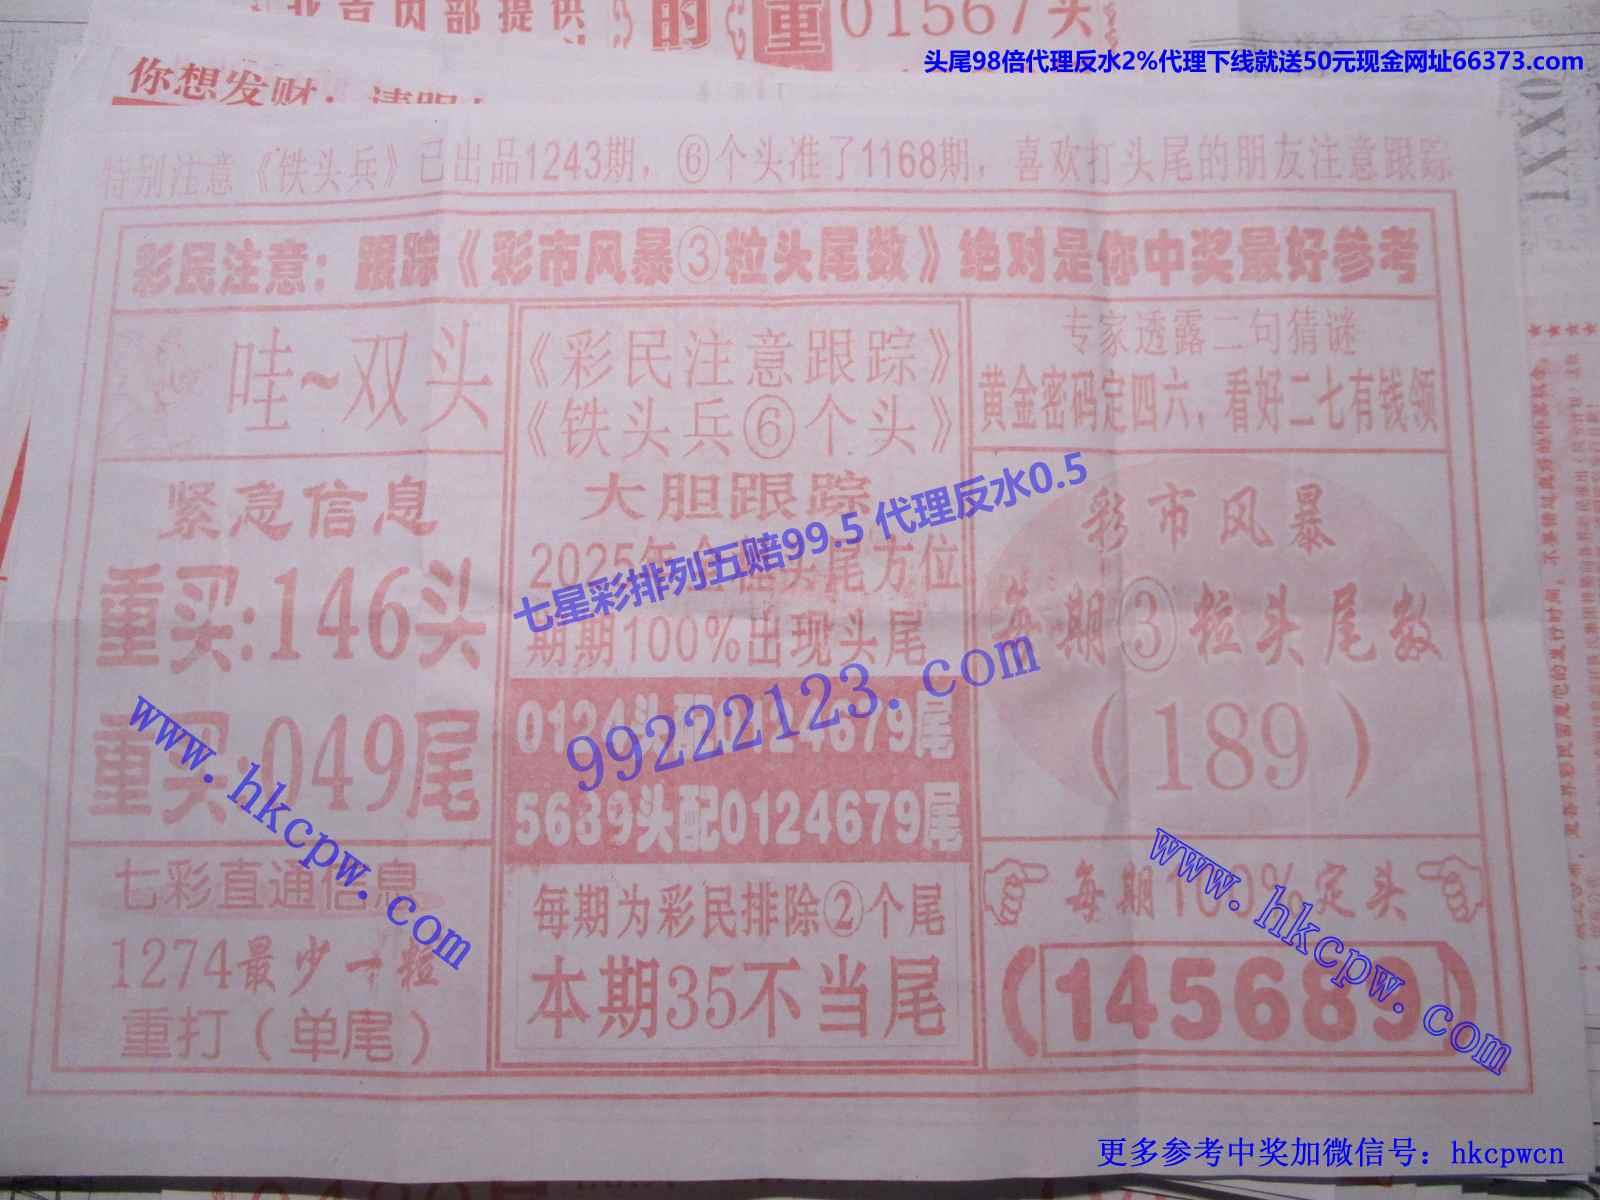 北京内部提供
的
重
01567头
头尾98倍代理反水2%代理下线就送50元现金网址66373.com
你想发财，请跟
特别注意《铁头兵》已出品1243期，⑥个头准了1168期，喜欢打头尾的朋友注意跟踪
彩民注意：跟踪《彩市风暴③粒头尾数》绝对是你中奖最好参考
哇~双头
紧急信息
重买:146头
重买:049尾
七彩直通信息
1274最少一粒
重打（单尾）
《彩民注意跟踪》
《铁头兵⑥个头》
大胆跟踪
2025年全 头尾方位
期期100%出现头尾
0124头配0124679尾
5689头配0124679尾
每期为彩民排除②个尾
本期35不当尾
专家透露二句猜谜
黄金密码定四六，看好二七有钱领
彩市风暴
每期③粒头尾数
（189）
每期100%定头
（145689）
七星彩排列五赔99.5 代理反水0.5
99222123.com
www.hkcpw.com
www.hkcpw.com
更多参考中奖加微信号：hkcpwcn